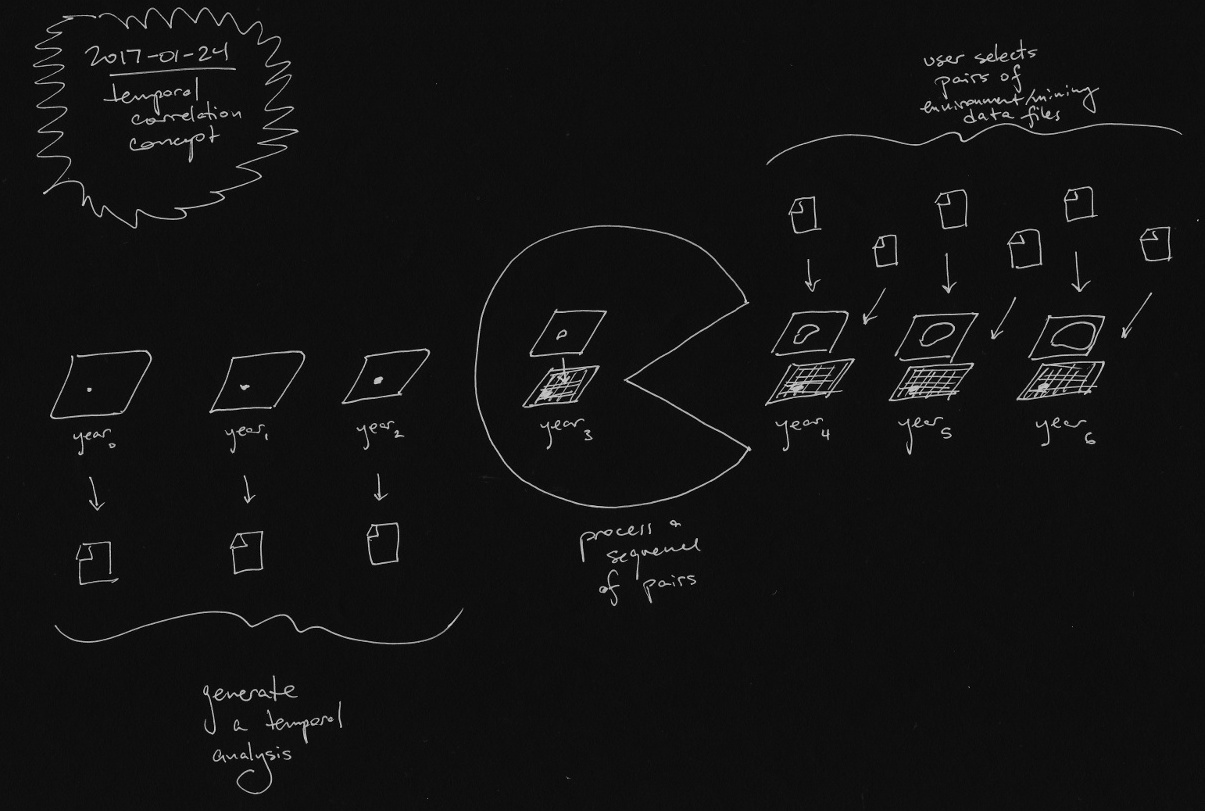 2017-01-24
temporal
correlation
concept
user selects
pairs of
environment/mining
data files
year0
year1
year2
year3
year4
year5
year6
process a
sequence
of pairs
generate
a temporal
analysis